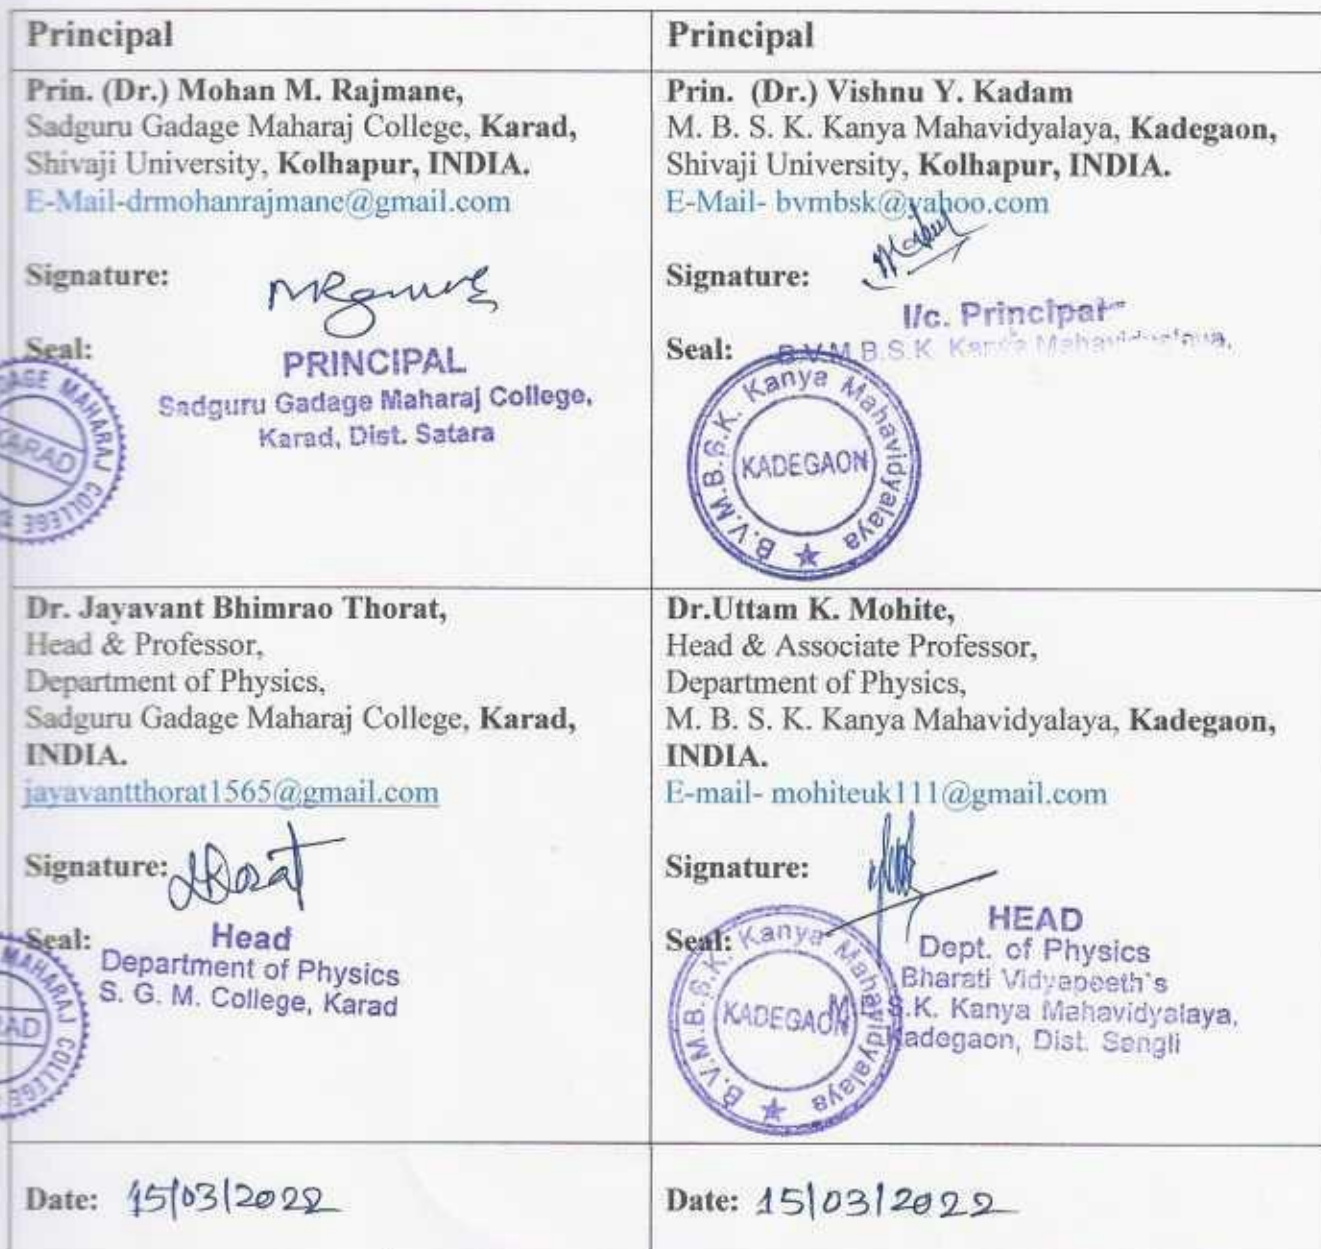 Principal
Prin. (Dr.) Mohan M. Rajmane,
Sadguru Gadage Maharaj College, Karad,
Shivaji University, Kolhapur, INDIA.
E-Mail-drmohanrajmane@gmail.com
Signature:
Seal:
PRINCIPAL
Sadguru Gadage Maharaj College,
Karad, Dist. Satara
MAHARAJ COLLEGE
KARAD
Principal
Prin. (Dr.) Vishnu Y. Kadam
M. B. S. K. Kanya Mahavidyalaya, Kadegaon,
Shivaji University, Kolhapur, INDIA.
E-Mail- bvmbsk@yahoo.com
Signature:
I/c. Principal
Seal:
B.V.M.B.S.K. Kanya Mahavidyalaya,
B.V.M.B.S.K. Kanya Mahavidyalaya
KADEGAON
Dr. Jayavant Bhimrao Thorat,
Head & Professor,
Department of Physics,
Sadguru Gadage Maharaj College, Karad,
INDIA.
jayavantthorat1565@gmail.com
Signature:
Seal:
Head
Department of Physics
S. G. M. College, Karad
MAHARAJ COLLEGE
Dr.Uttam K. Mohite,
Head & Associate Professor,
Department of Physics,
M. B. S. K. Kanya Mahavidyalaya, Kadegaon,
INDIA.
E-mail- mohiteuk111@gmail.com
Signature:
Seal:
HEAD
Dept. of Physics
Bharati Vidyapeeth's
S.K. Kanya Mahavidyalaya,
Kadegaon, Dist. Sangli
B.V.M.B.S.K. Kanya Mahavidyalaya
KADEGAON
Date: 15/03/2022
Date: 15/03/2022